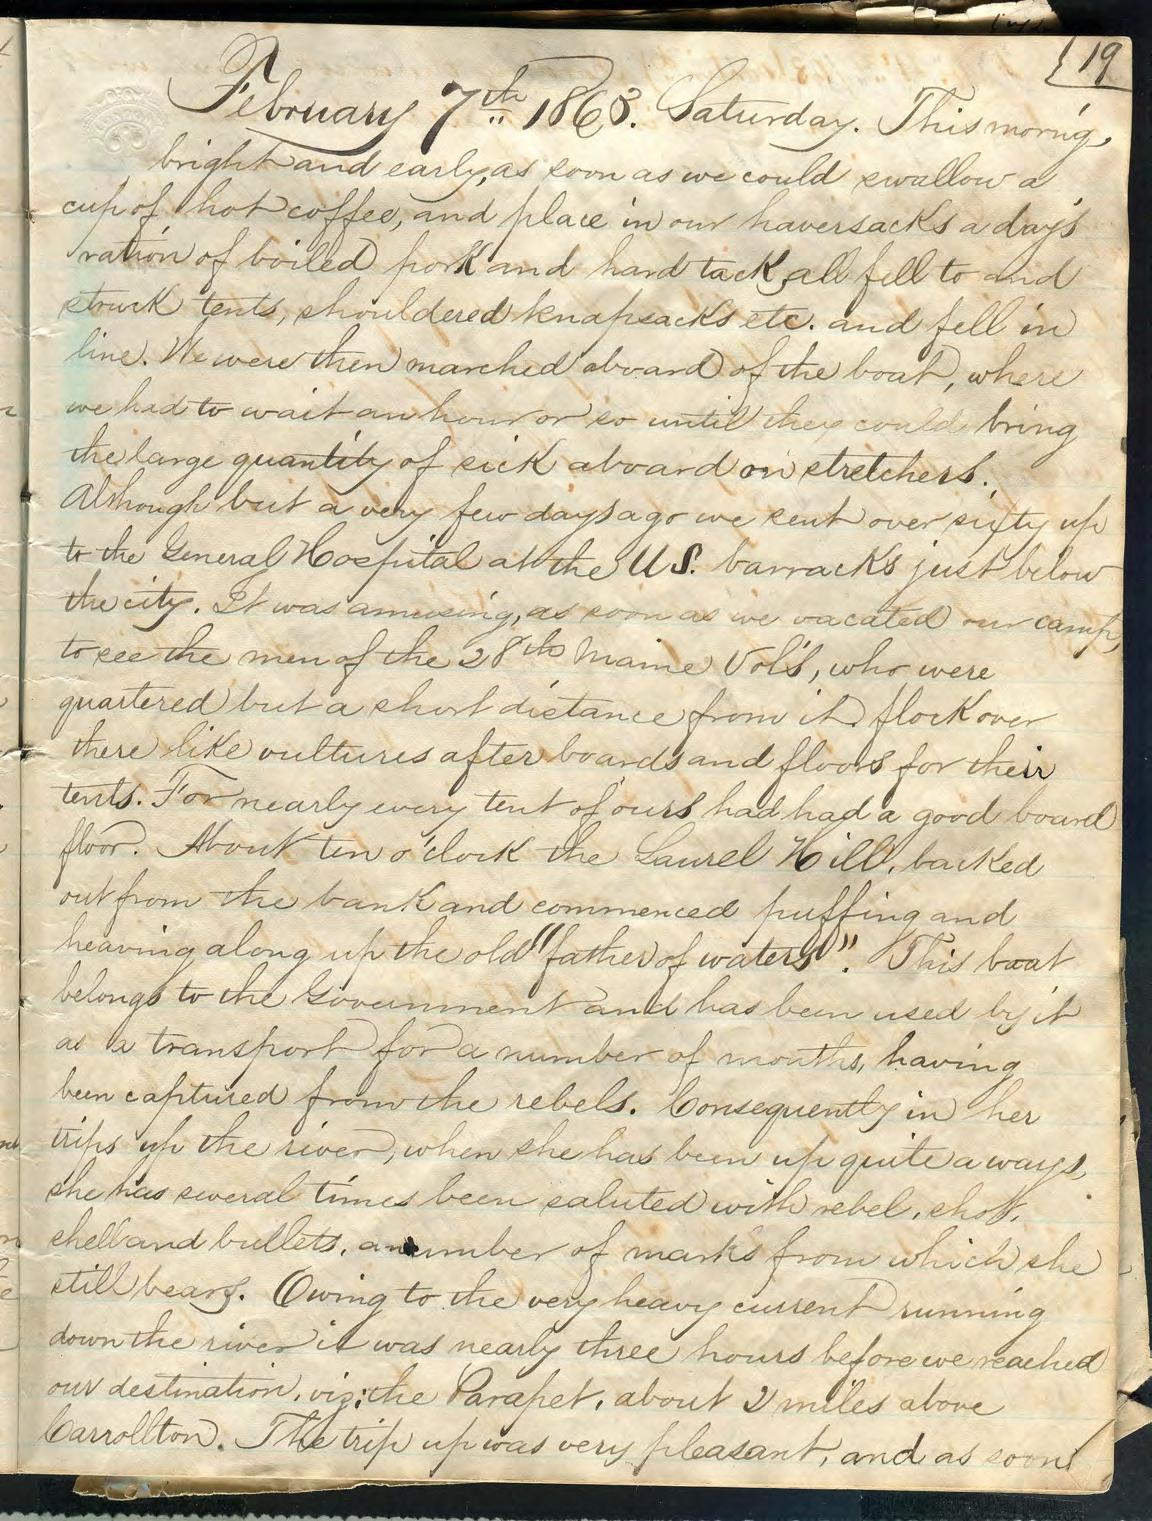 19
February 7th 1863. Saturday. This morn'g,
bright and early, as soon as we could swallow a
cup of hot coffee, and place in our haversacks a day's
ration of boiled pork and hard tack, all fell to and
struck tents, shouldered knapsacks etc. and fell in
line. We were then marched aboard of the boat, where
we had to wait an hour or so until they could bring
the large quantity of sick aboard on stretchers.
Although but a very few days ago we sent over sixty up
to the General Hospital at the U.S. barracks just below
the city. It was amusing, as soon as we vacated our camp,
to see the men of the 28th Maine Vol's, who were
quartered but a short distance from it, flock over
there like vultures after boards and floors for their
tents. For nearly every tent of ours had had a good board
floor. About ten o'clock the Laurel Hill, backed
out from the bank and commenced puffing and
heaving along up the old "father of waters". This boat
belongs to the Government and has been used by it
as a transport for a number of months, having
been captured from the rebels. Consequently in her
trips up the river, when she has been up quite a ways,
she has several times been saluted with rebel, shot,
shell and bullets, a number of marks from which she
still bears. Owing to the very heavy current running
down the river it was nearly three hours before we reached
our destination, viz; the Parapet, about 2 miles above
Carrollton. The trip up was very pleasant, and as soon